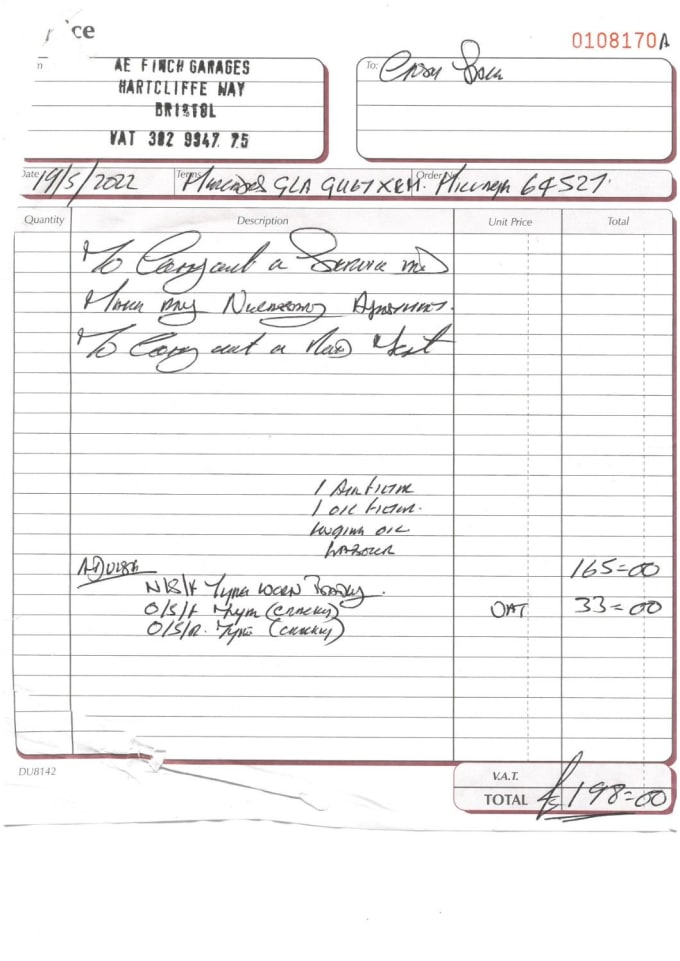 ice
0108170A
AE FINCH GARAGES
HARTCLIFFE WAY
BRISTOL
VAT 302 9947 75
To: Cash Sale
Date 19/5/2022 Terms Mercedes GLA Order No. 64527.
Quantity Description Unit Price Total
To Carry out a Service and
Make any Necessary Adjustments.
To Carry out a Test
1 Air Filter
1 Oil Filter.
Engine Oil
Labour
165=00
ADVISE
N/S/F Tyre worn Badly.
O/S/F Tyre (cracking) VAT 33=00
O/S/R. Tyre (cracking)
DU8142
V.A.T.
TOTAL £198=00